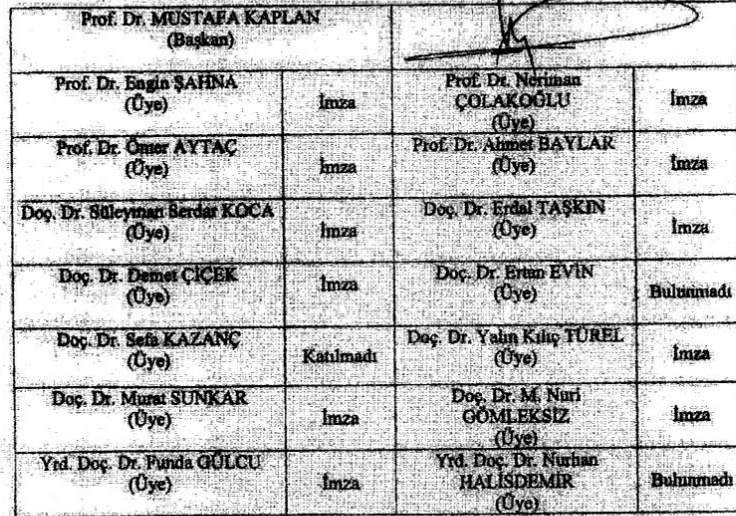 Prof. Dr. MUSTAFA KAPLAN
(Başkan)
Prof. Dr. Engin ŞAHNA
(Üye)
İmza
Prof. Dr. Neriman
ÇOLAKOĞLU
(Üye)
İmza
Prof. Dr. Ömer AYTAÇ
(Üye)
İmza
Prof. Dr. Ahmet BAYLAR
(Üye)
İmza
Doç. Dr. Süleyman Serdar KOCA
(Üye)
İmza
Doç. Dr. Erdal TAŞKIN
(Üye)
İmza
Doç. Dr. Demet ÇİÇEK
(Üye)
İmza
Doç. Dr. Ertan EVİN
(Üye)
Bulunmadı
Doç. Dr. Sefa KAZANÇ
(Üye)
Katılmadı
Doç. Dr. Yalın Kılıç TÜREL
(Üye)
İmza
Doç. Dr. Murat SUNKAR
(Üye)
İmza
Doç. Dr. M. Nuri
GÖMLEKSİZ
(Üye)
İmza
Yrd. Doç. Dr. Funda GÜLCU
(Üye)
İmza
Yrd. Doç. Dr. Nurhan
HALİSDEMİR
(Üye)
Bulunmadı